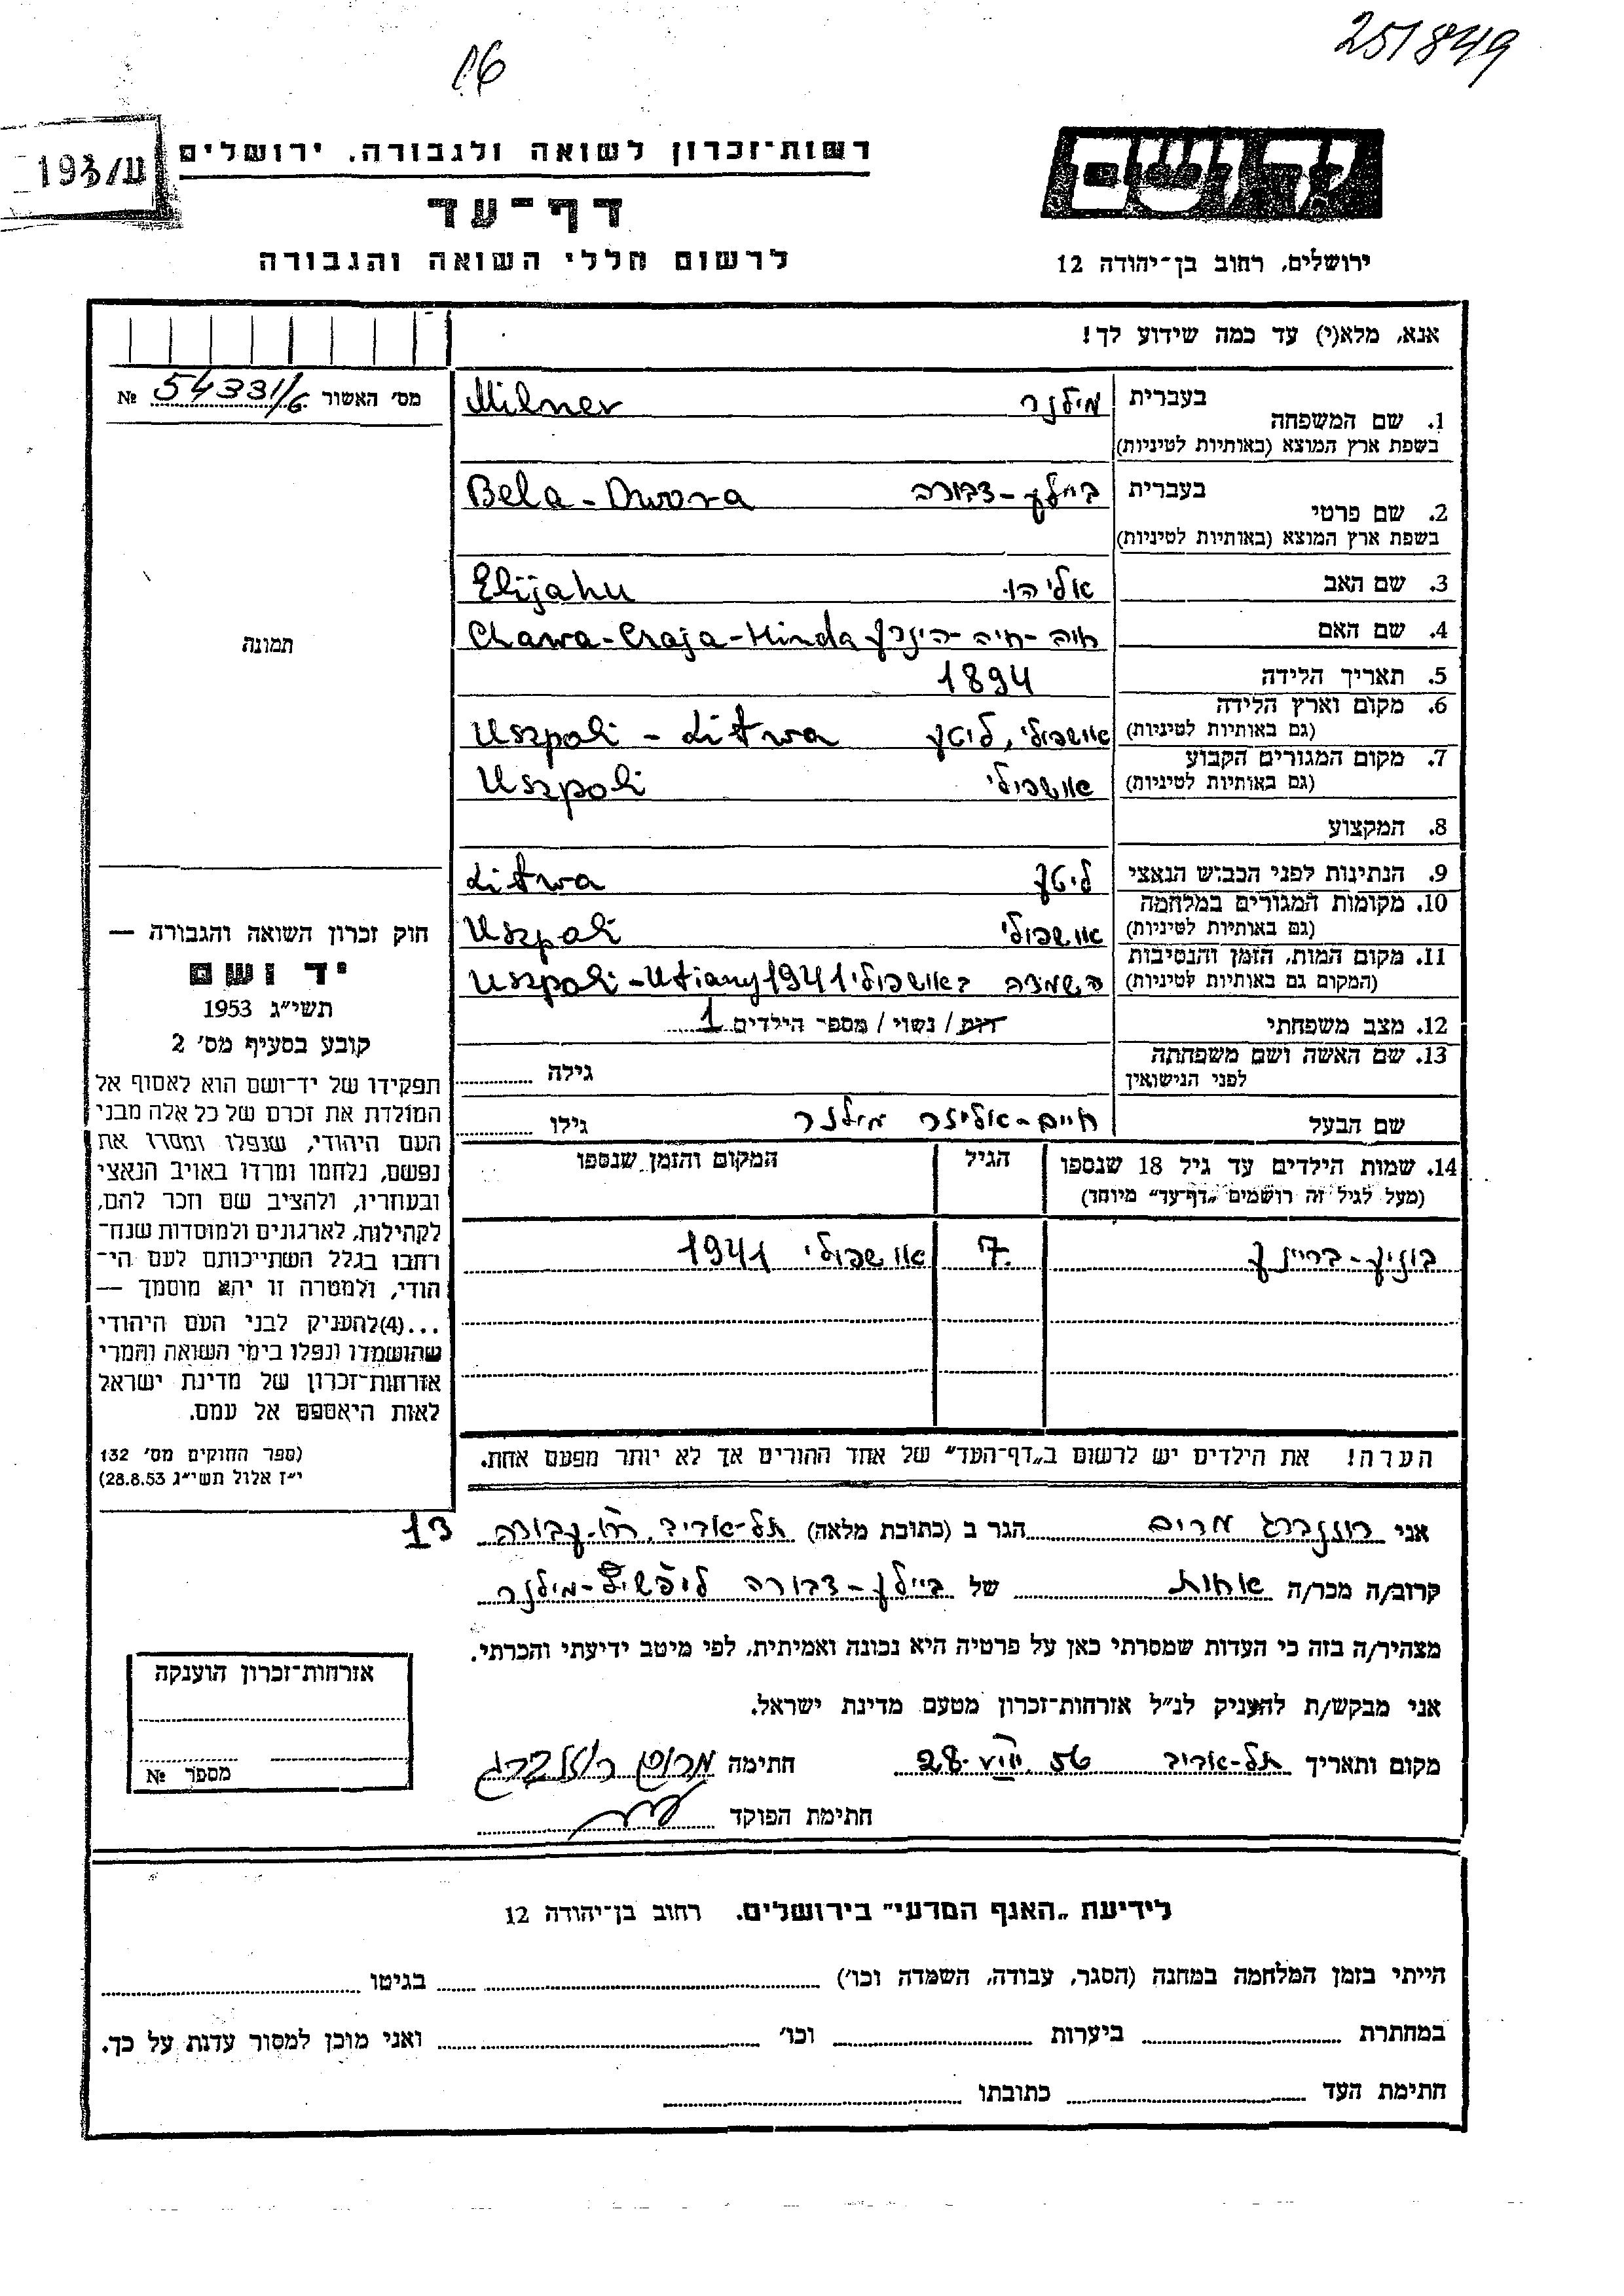 251849
16
יד ושם
רשות־זכרון לשואה ולגבורה. ירושלים
193/ע
דף־עד
ירושלים, רחוב בן־יהודה 12
לרשום חללי השואה והגבורה
אנא, מלא(י) עד כמה שידוע לך!
מס׳ האשור 54331/6 №
1. שם המשפחה
בעברית מילנר Milner
בשפת ארץ המוצא (באותיות לטיניות)
2. שם פרטי
בעברית ביילע-דבורה Bela-Dwora
בשפת ארץ המוצא (באותיות לטיניות)
3. שם האב אליהו Elijahu
4. שם האם חוה-חיה-הינדע Chawa-Chaja-Hinda
תמונה
5. תאריך הלידה 1894
6. מקום וארץ הלידה
(גם באותיות לטיניות) אושפולי, ליטע Uszpoli - Litwa
7. מקום המגורים הקבוע
(גם באותיות לטיניות) אושפולי Uszpoli
8. המקצוע
9. הנתינות לפני הכבוש הנאצי ליטע Litwa
10. מקומות המגורים במלחמה
(גם באותיות לטיניות) אושפולי Uszpoli
11. מקום המות, הזמן והנסיבות
(המקום גם באותיות לטיניות) השמדה באושפולי 1941 Uszpoli-Utiany
12. מצב משפחתי רוק / נשוי / מספר הילדים 1
13. שם האשה ושם משפחתה
לפני הנישואין גילה
שם הבעל חיים-אליעזר מילנר גילו
14. שמות הילדים עד גיל 18 שנספו הגיל המקום והזמן שנספו
(מעל לגיל זה רושמים „דף־עד״ מיוחד)
7 אושפולי 1941
הערה! את הילדים יש לרשום ב„דף־העד״ של אחד ההורים אך לא יותר מפעם אחת.
חוק זכרון השואה והגבורה —
יד ושם
תשי״ג 1953
קובע בסעיף מס׳ 2
תפקידו של יד־ושם הוא לאסוף אל
המולדת את זכרם של כל אלה מבני
העם היהודי, שנפלו ומסרו את
נפשם, נלחמו ומרדו באויב הנאצי
ובעוזריו, ולהציב שם וזכר להם,
לקהילות, לארגונים ולמוסדות שנח־
רחבו בגלל השתייכותם לעם הי־
הודי, ולמטרה זו יהא מוסמך —
...(4)להעניק לבני העם היהודי
שהושמדו ונפלו בימי השואה והמרי
אזרחות־זכרון של מדינת ישראל
לאות היאספם אל עמם.
(ספר החוקים מס׳ 132
י״ז אלול תשי״ג 28.8.53)
אני רוזנברג מרים הגר ב (כתובת מלאה) תל-אביב, רח. עבודה 13
קרוב/ה מכר/ה אחות של ביילע-דבורה ליפשיץ-מילנר
מצהיר/ה בזה כי העדות שמסרתי כאן על פרטיה היא נכונה ואמיתית, לפי מיטב ידיעתי והכרתי.
אני מבקש/ת להעניק לנ״ל אזרחות־זכרון מטעם מדינת ישראל.
מקום ותאריך תל-אביב 28. VIII. 56 חתימה מרים רוזנברג
חתימת הפוקד
אזרחות־זכרון הוענקה
מספר №
לידיעת „האגף המדעי״ בירושלים. רחוב בן־יהודה 12
הייתי בזמן המלחמה במחנה (הסגר, עבודה, השמדה וכו׳) בגיטו
במחתרת ביערות וכו׳ ואני מוכן למסור עדות על כך.
חתימת העד כתובתו